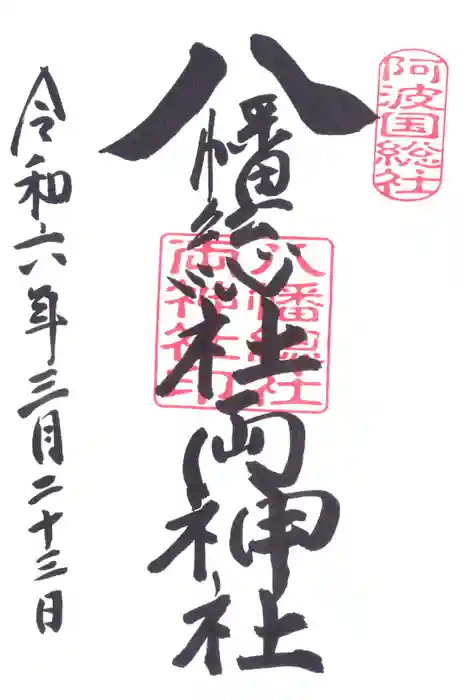 阿波国総社
八幡総社両神社
八幡總社
両神社印
令和六年三月二十三日